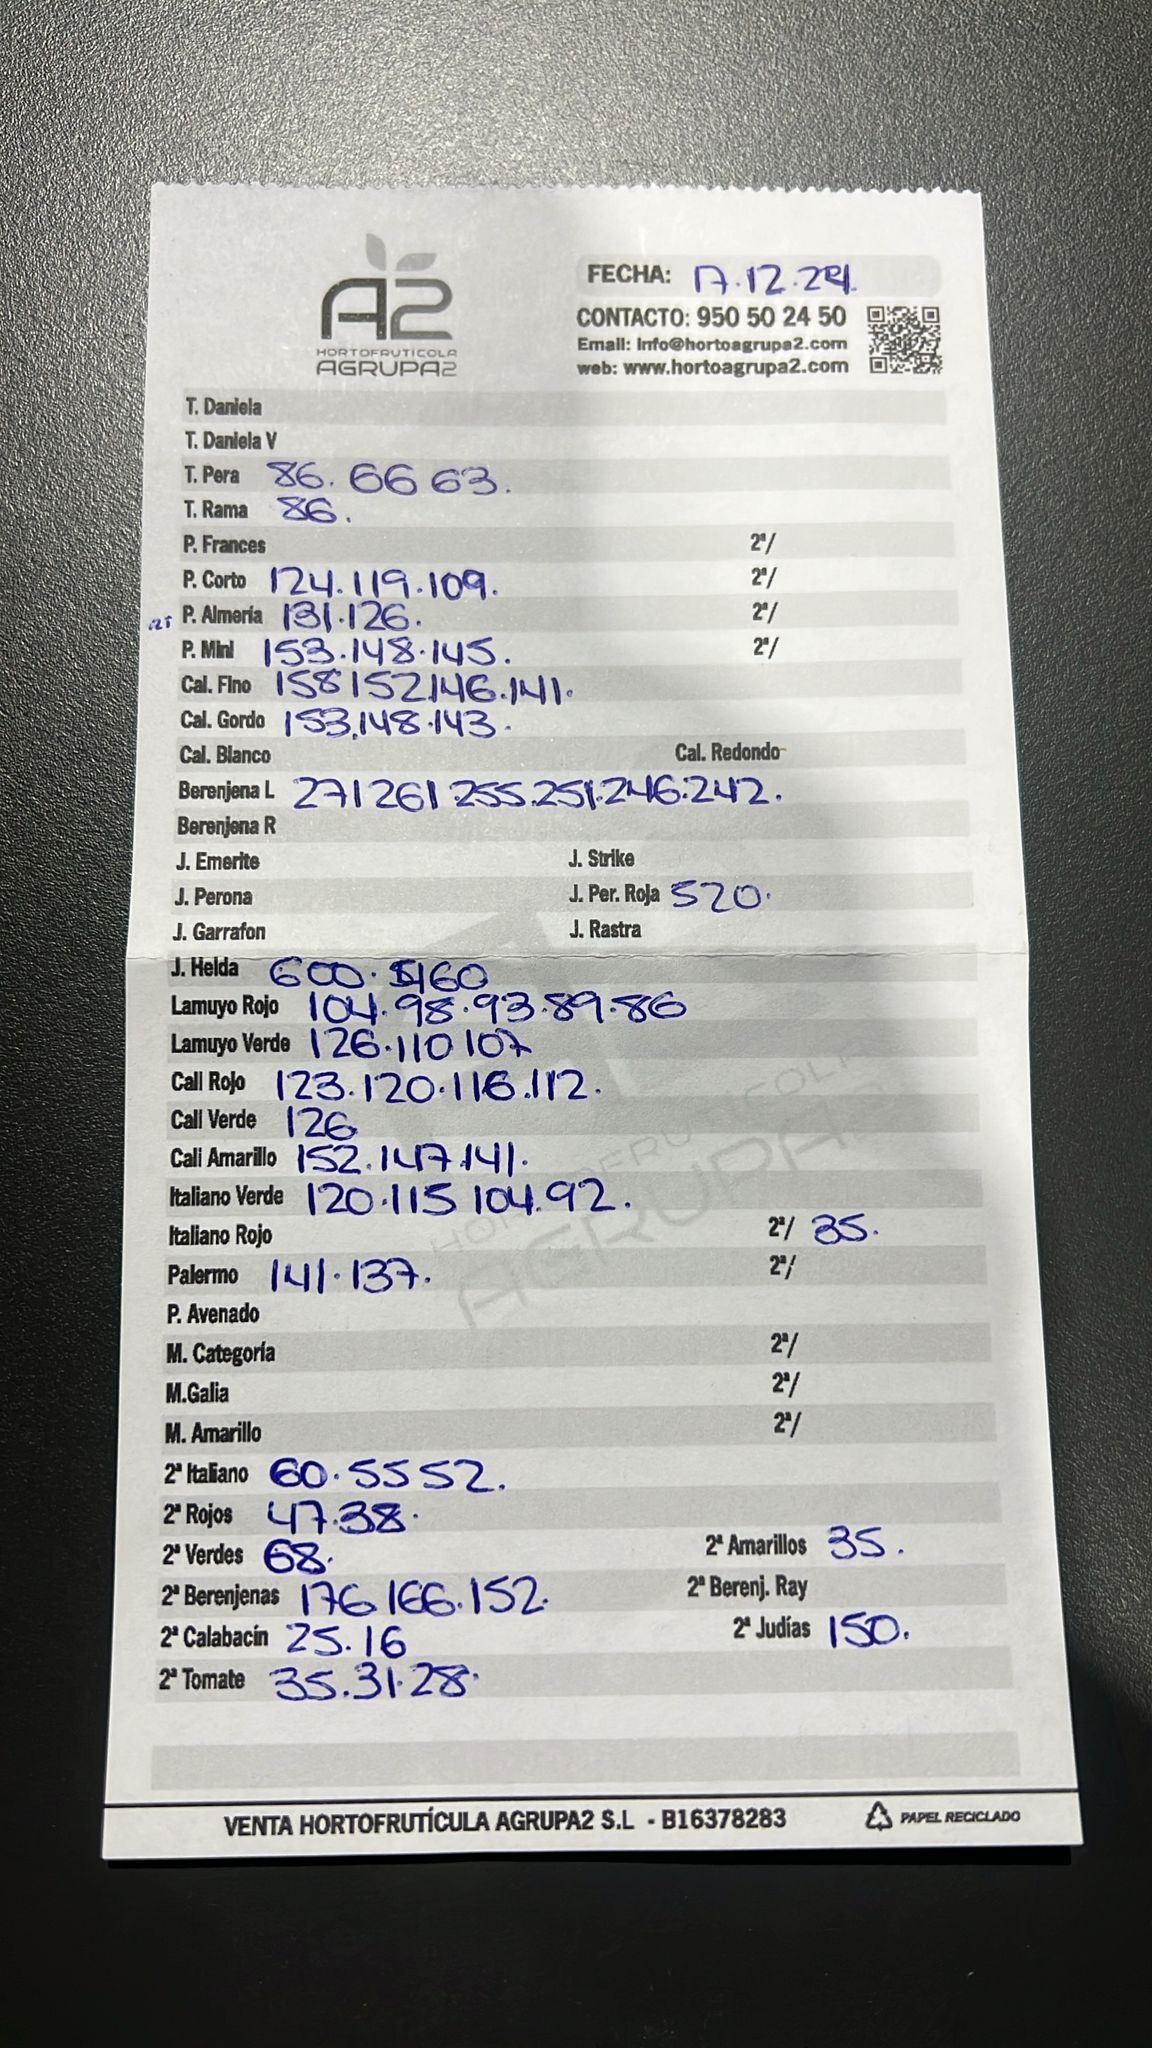 A2
HORTOFRUTICOLA
AGRUPA2
FECHA: 17.12.24
CONTACTO: 950 50 24 50
Email: info@hortoagrupa2.com
web: www.hortoagrupa2.com
T. Daniela
T. Daniela V
T. Pera 86. 66 63.
T. Rama 86.
P. Frances 2ª/
P. Corto 124.119.109. 2ª/
P. Almería 131.126. 2ª/
P. Mini 153.148.145. 2ª/
Cal. Fino 158 152.146.141.
Cal. Gordo 153.148.143.
Cal. Blanco Cal. Redondo
Berenjena L 271 261 255.251.246.242.
Berenjena R
J. Emerite J. Strike
J. Perona J. Per. Roja 520.
J. Garrafon J. Rastra
J. Helda 600. 460
Lamuyo Rojo 104.98.93.89.86
Lamuyo Verde 126.110 107
Cali Rojo 123.120.116.112.
Cali Verde 126
Cali Amarillo 152.147.141.
Italiano Verde 120.115 104.92.
Italiano Rojo 2ª/ 35.
Palermo 141.137. 2ª/
P. Avenado
M. Categoría 2ª/
M.Galia 2ª/
M. Amarillo 2ª/
2ª Italiano 60.55 52.
2ª Rojos 47.38.
2ª Verdes 68. 2ª Amarillos 35.
2ª Berenjenas 176 166.152. 2ª Berenj. Ray
2ª Calabacín 25.16 2ª Judías 150.
2ª Tomate 35.31.28.
VENTA HORTOFRUTÍCULA AGRUPA2 S.L - B16378283 PAPEL RECICLADO